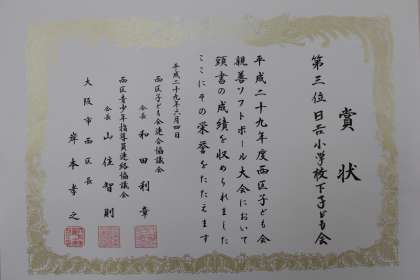 賞状
第三位 日吉小学校下子ども会
平成二十九年度西区子ども会
親善ソフトボール大会において
頭書の成績を収められました
ここにその栄誉をたたえます
平成二十九年六月四日
西区子ども会連合協議会
会長 和田利章
西区青少年指導員連絡協議会
会長 山住智則
大阪市西区長
岸本孝之